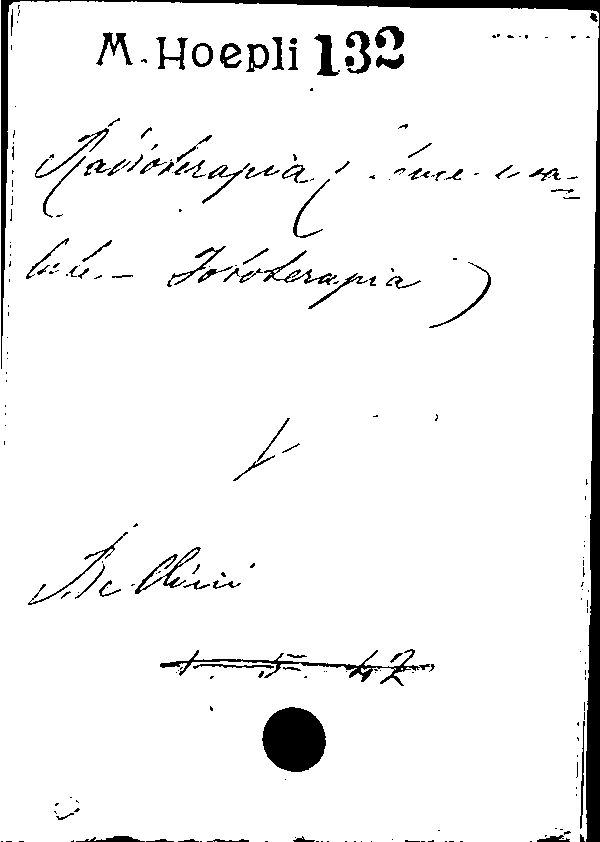 M. Hoepli 132
Radioterapia ( Luce e sa-
lute - Fototerapia )
Bellini
1. 5. 47